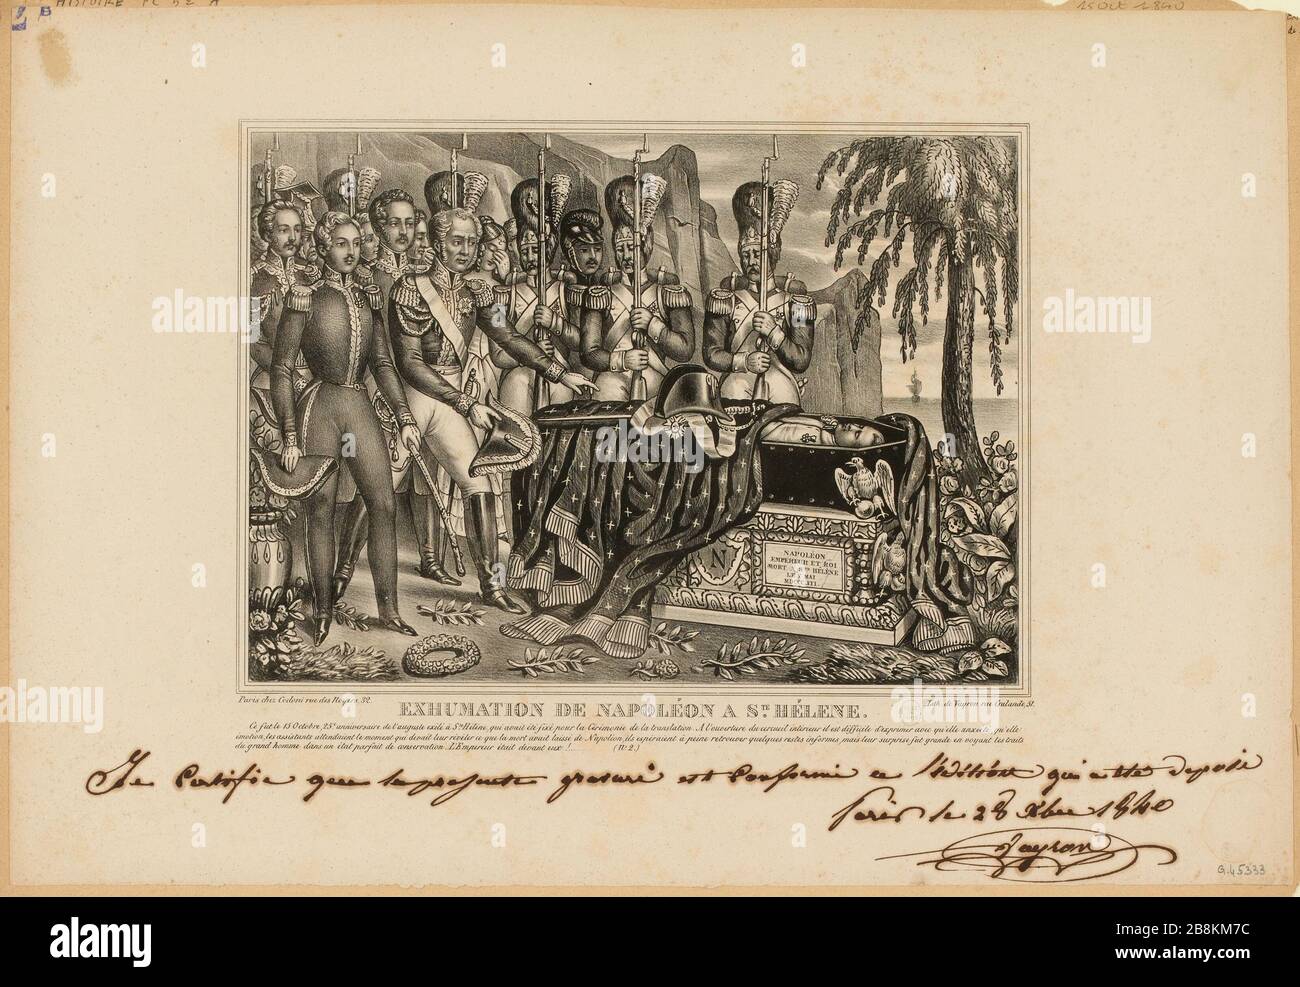 B
HISTOIRE PC 52 A
15 Oct 1840
NAPOLÉON
EMPEREUR ET ROI
MORT A STE HÉLÈNE
LE 5 MAI
N
Paris chez Codoni rue des Noyers 32.
Lith. de Vayron rue Galande, 51.
EXHUMATION DE NAPOLÉON A STE HÉLÈNE.
Ce fut le 15 Octobre, 25e anniversaire de l'auguste exilé à Ste Hélène, qui avait été fixé pour la Cérémonie de la translation. A l'ouverture du cercueil intérieur il est difficile d'exprimer avec qu'elle anxiété, qu'elle
émotion, les assistants attendaient le moment qui devait leur révéler ce que la mort avait laissé de Napoléon, ils espéraient à peine retrouver quelques restes informes, mais leur surprise fut grande en voyant les traits
du grand homme dans un état parfait de conservation. L'Empereur était devant eux !... (No 2.)
Je Certifie que la présente gravure est Conforme a l'édition qui a été deposé
Paris le 28 Xbre 1840
Vayron
G.45333
alamy
Image ID: 2B8KM7C
www.alamy.com